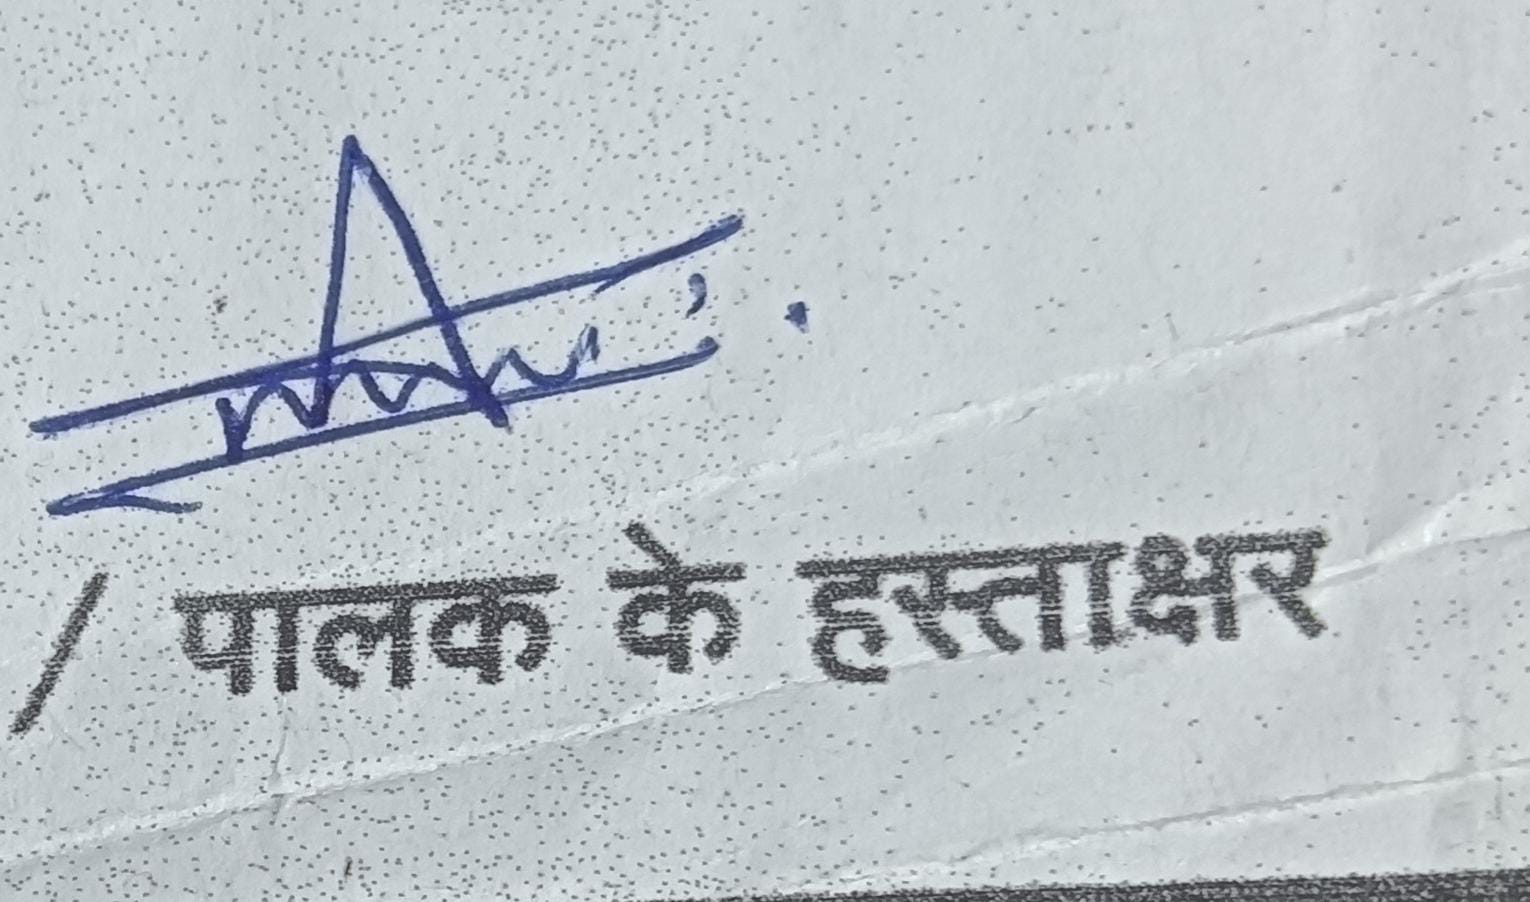 / पालक के हस्ताक्षर